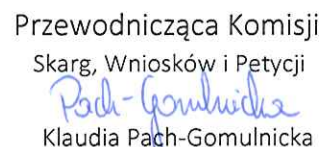 Przewodnicząca Komisji
Skarg, Wniosków i Petycji
Pach-Gomulnicka
Klaudia Pach-Gomulnicka